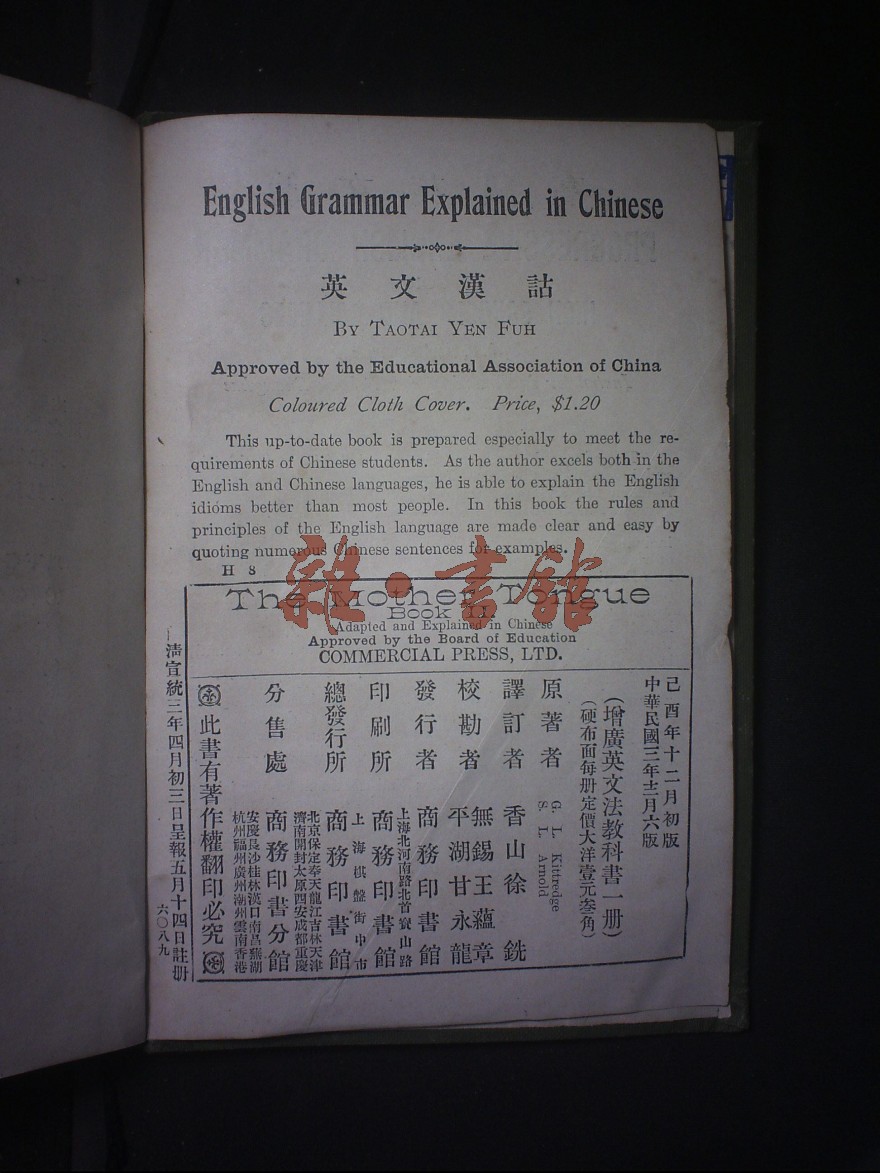 English Grammar Explained in Chinese
英文漢詁
BY TAOTAI YEN FUH
Approved by the Educational Association of China
Coloured Cloth Cover. Price, $1.20
This up-to-date book is prepared especially to meet the re-
quirements of Chinese students. As the author excels both in the
English and Chinese languages, he is able to explain the English
idioms better than most people. In this book the rules and
principles of the English language are made clear and easy by
quoting numerous Chinese sentences for examples.
H 8
雜·書館
The Mother Tongue
Book II.
Adapted and Explained in Chinese
Approved by the Board of Education
COMMERCIAL PRESS, LTD.
己酉年十二月初版
中華民國三年十二月六版
(增廣英文法教科書一册)
(硬布面每册定價大洋壹元叁角)
原著者 G. L. Kittredge
S. L. Arnold
譯訂者 香山徐銑
校勘者 無錫王蘊章
平湖甘永龍
發行者 商務印書館
印刷所 上海北河南路北首寶山路
商務印書館
總發行所 上海棋盤街中市
商務印書館
分售處 北京保定奉天龍江吉林天津
濟南開封太原西安成都重慶
商務印書分館
安慶長沙桂林漢口南昌蕪湖
杭州福州廣州潮州雲南香港
此書有著作權翻印必究
清宣統三年四月初三日呈報五月十四日註册
六〇八九